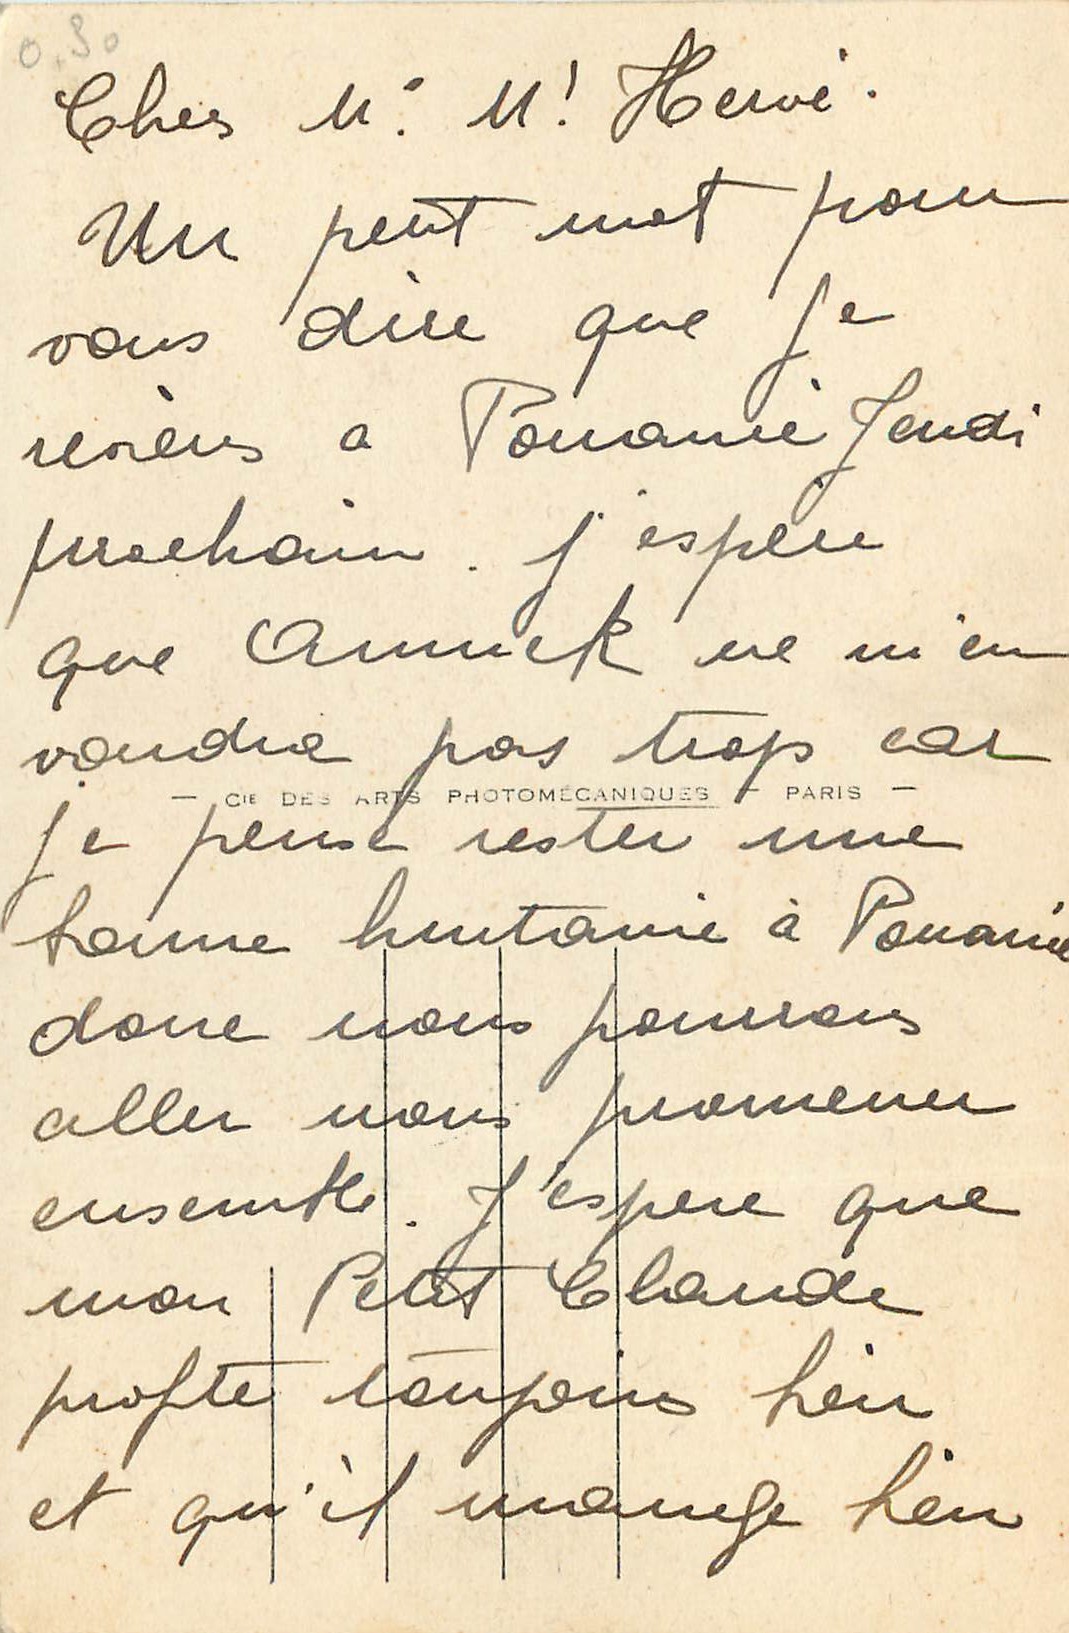 0,30
Cher M. M! Hervé.
Un petit mot pour
vous dire que je
reviens a Pouancé Jeudi
prochain. j'espère
que Annick ne m'en
voudra pas trop car
— Cie DES ARTS PHOTOMÉCANIQUES — PARIS —
je pense rester une
bonne huitaine à Pouancé
donc nous pourrons
aller nous promener
ensemble. J'espere que
mon Petit Claude
profite toujours bien
et qu'il mange bien